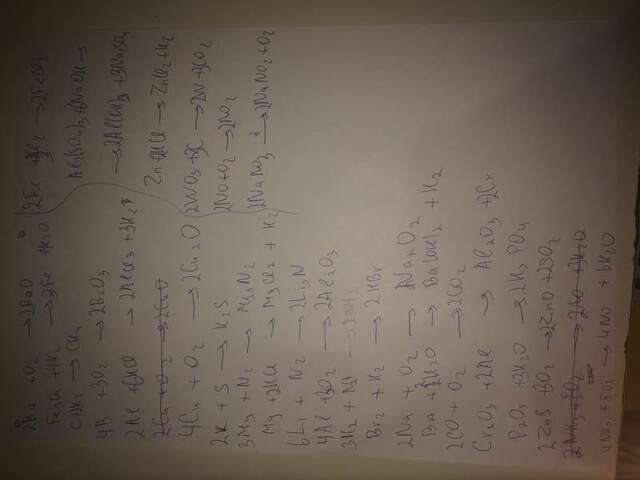 2Ba + O2 → 2BaO
C + 2H2 → CH4
4B + 3O2 → 2B2O3
2Al + 6HCl → 2AlCl3 + 3H2↑
2Cu + O2 → 2CuO
4Cu + O2 → 2Cu2O
2K + S → K2S
3Mg + N2 → Mg3N2
Mg + 2HCl → MgCl2 + H2
6Li + N2 → 2Li3N
4Al + 3O2 → 2Al2O3
3H2 + N2 → 2NH3
Br2 + H2 → 2HBr
2Na + O2 → Na2O2
Ba + 2H2O → Ba(OH)2 + H2
2CO + O2 → 2CO2
Cr2O3 + 2Al → Al2O3 + 2Cr
P2O5 + 3H2O → 2H3PO4
2ZnS + 3O2 → 2ZnO + 2SO2
4NH3 + 5O2 → 4NO + 6H2O
2Fe + 3Cl2 → 2FeCl3
Al2(SO4)3 + 6NaOH →
→ 2Al(OH)3 + 3Na2SO4
Zn + 2HCl → ZnCl2 + H2
2WO3 + 3C → 2W + 3CO2
2NO + O2 → 2NO2
2NaNO3 → 2NaNO2 + O2